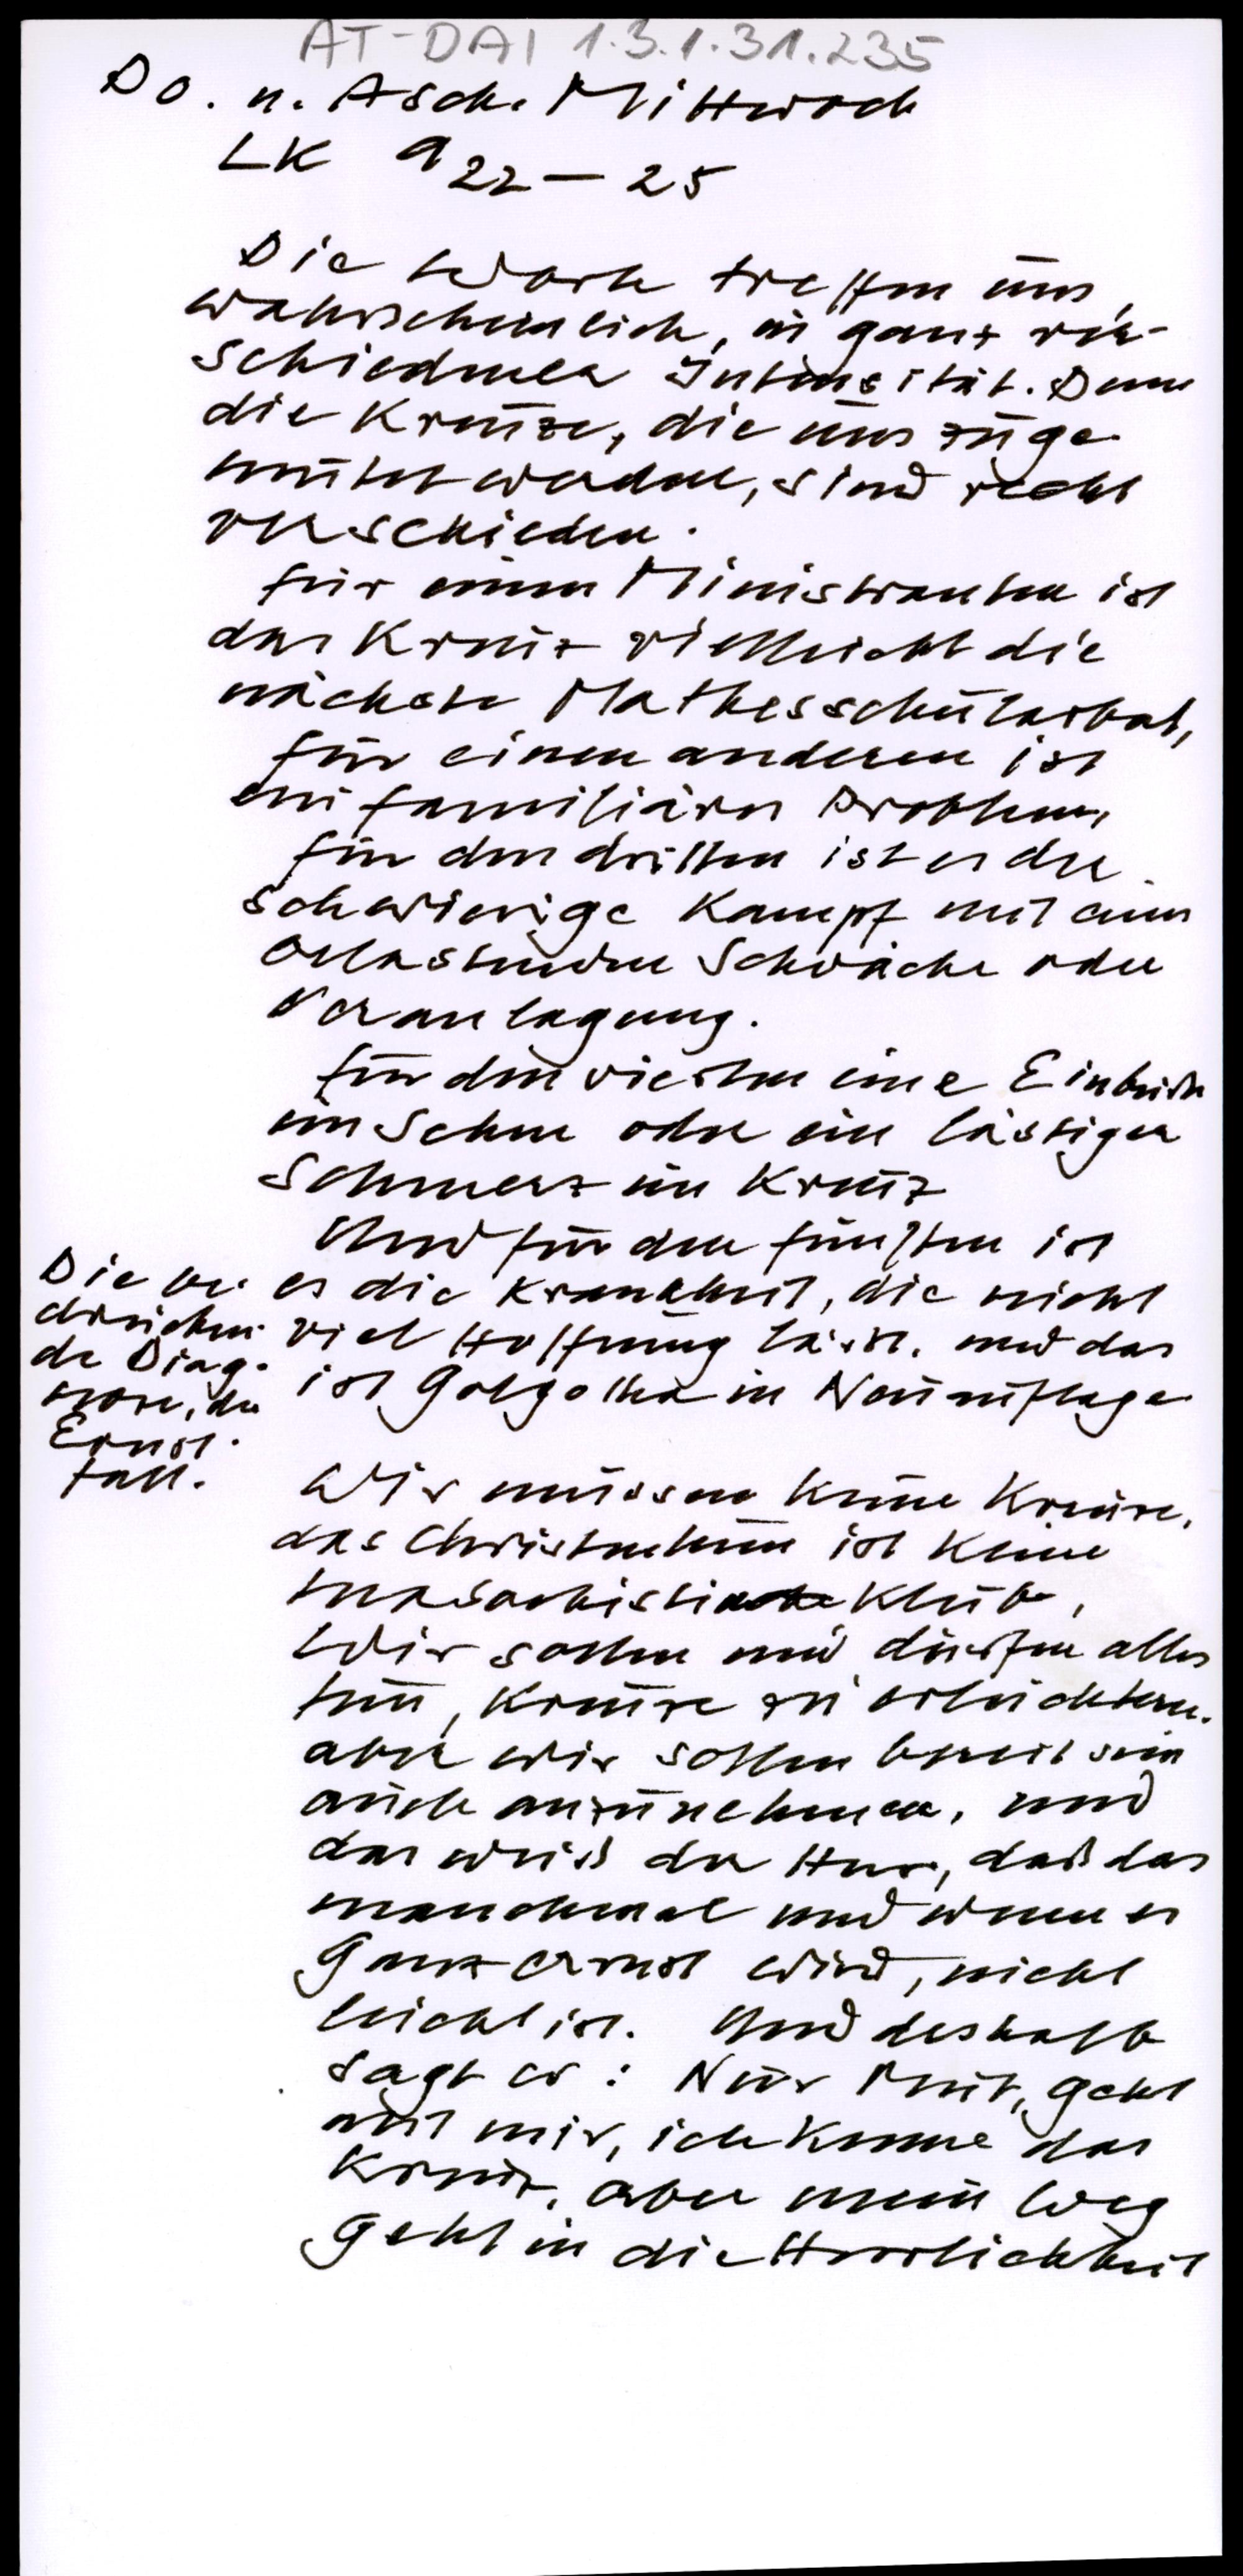 AT-DAI 1.3.1.31.235
Do. n. Asch. Mittwoch
LK 9 22-25
Die Worte treffen uns,
wahrscheinlich, in ganz ver-
schiedener Intensität. Denn
die Kreuze, die uns zuge
mutet werden, sind recht
verschieden.
für einen Ministranten ist
das Kreuz vielleicht die
nächste Mathesschularbeit,
für einen anderen ist
ein familiäres Problem,
für den dritten ist es der
schwierige Kampf mit einer
belastenden Schwäche oder
Veranlagung.
für den vierten eine Einbuße
im Sehen oder ein lästiger
Schmerz im Kreuz
Und für den fünften ist
es die Krankheit, die nicht
viel Hoffnung läßt. und das
ist Golgotha in Neuauflage
Die be-
drücken-
de Diag-
nose, der
Ernst-
fall.
Wir müssen keine Kreuze,
das Christentum ist kein
masochistischer Klub,
Wir sollen und dürfen alles
tun, Kreuze zu erleichtern.
aber wir sollen bereit sein
auch anzunehmen, und
das weiß der Herr, daß das
manchmal und wenn es
ganz ernst wird, nicht
leicht ist. Und deshalb
sagt er: Nur Mut, geht
mit mir, ich kenne das
Kreuz, aber mein Weg
geht in die Herrlichkeit